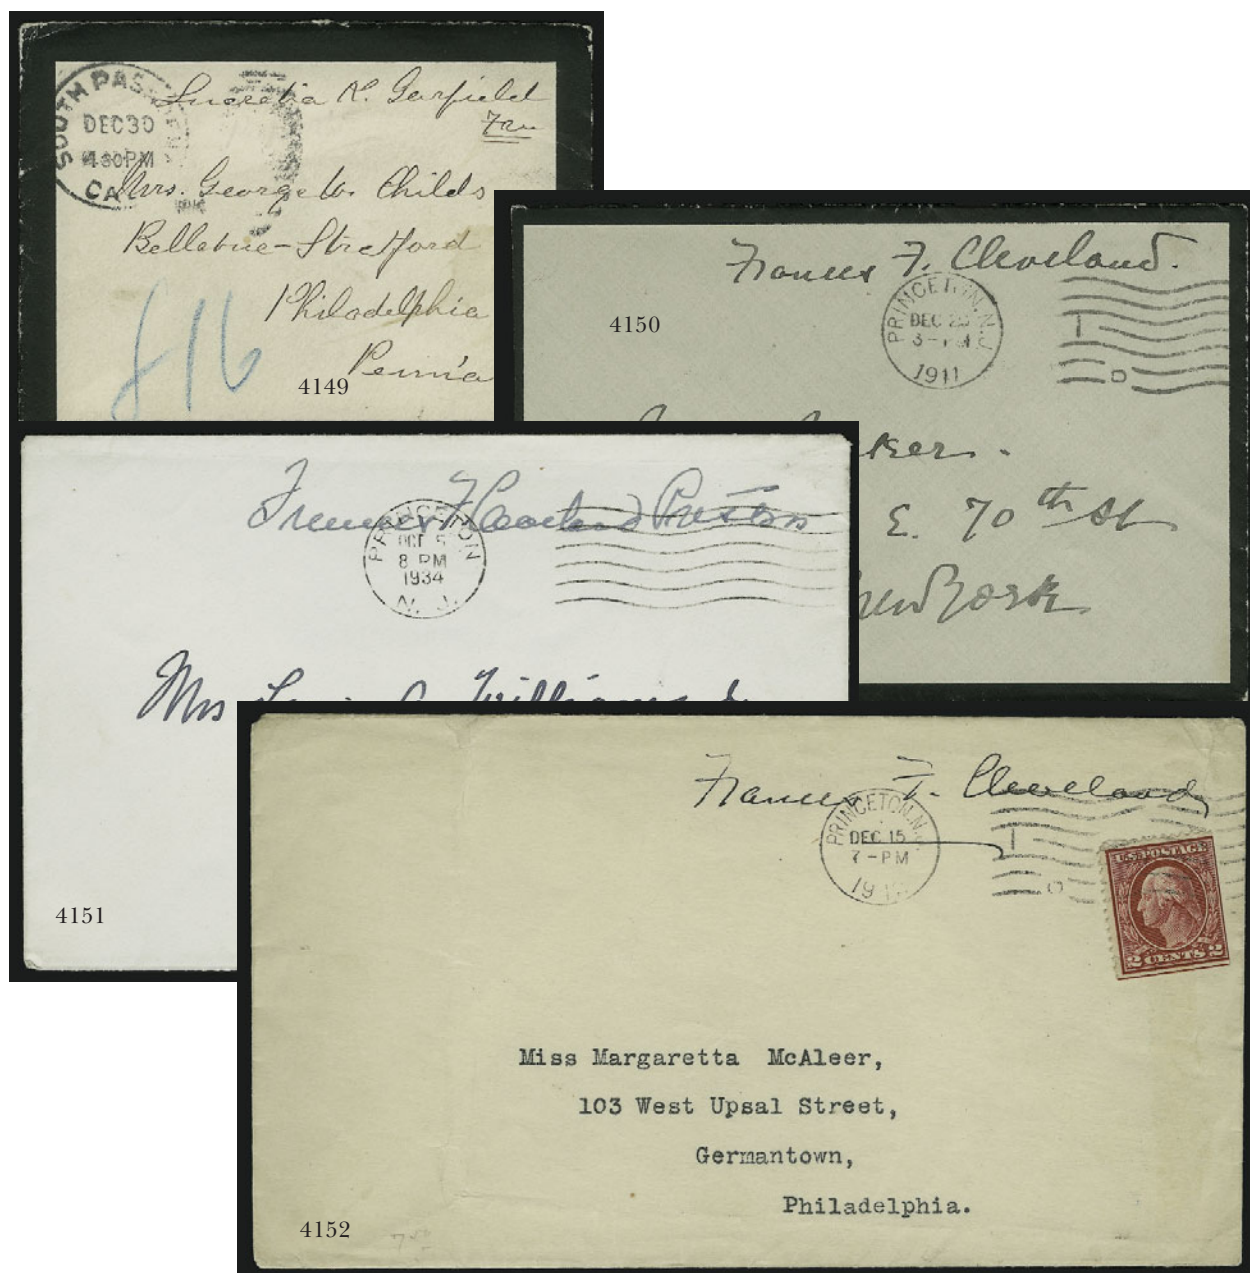 SOUTH PAS
DEC 30
4 30 PM
CAL
Lucretia R. Garfield
Free
Mrs. George W. Childs
Bellevue-Stratford
Philadelphia
Penn'a
416
4149
Frances F. Cleveland.
PRINCETON, N.J.
DEC
3 - PM
1911
4150
ker.
E. 70th St
New York
Frances F Cleveland Preston
PRINCETON
OCT 5
8 PM
1934
N. J.
Mrs Williams Jr
4151
Frances F. Cleveland
PRINCETON, N.J.
DEC 15
7 - PM
19
U.S. POSTAGE
2 CENTS 2
Miss Margaretta McAleer,
103 West Upsal Street,
Germantown,
Philadelphia.
4152